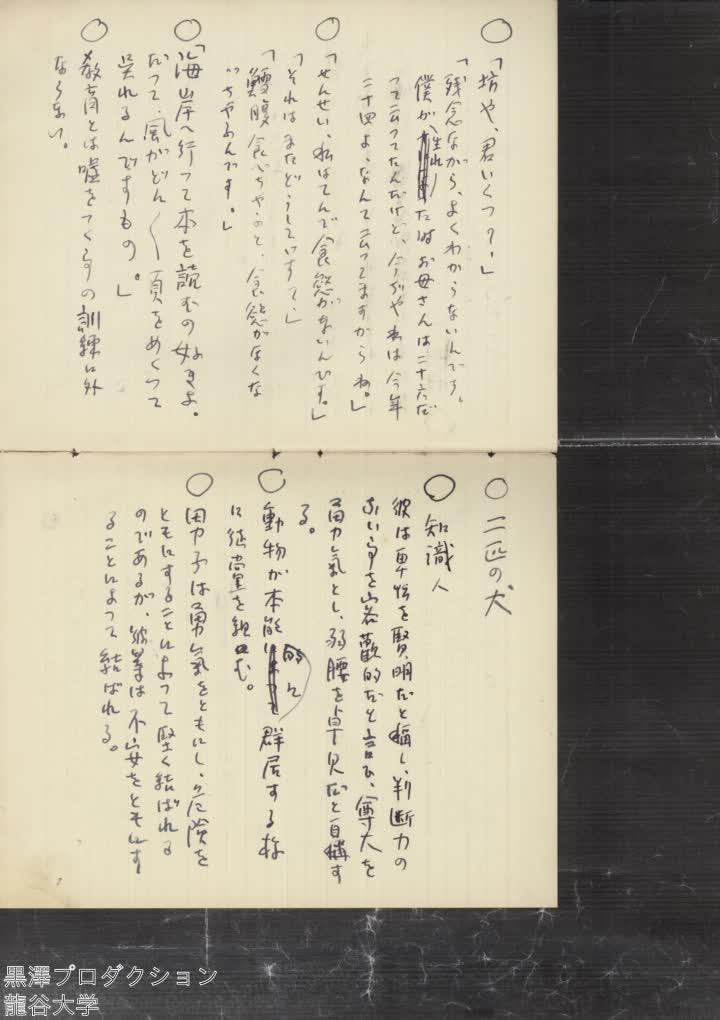 ○「坊や、君いくつ?」
「残念ながら、よくわからないんです。
僕が生れた時お母さんは二十六だ
つて云つてたんだけど、今ぢや私は今年
二十四よ、なんて云つてますからね。」
○「せんせい、私はてんで食慾がないんです。」
「それはまたどうしてゞす?」
「鱈腹食いちやうと、食慾がなくな
つちやうんです。」
○「海岸へ行つて本を読むの好きよ。
だつて、風がどん〳〵頁をめくつて
呉れるんですもの。」
○教育とは嘘をつく事の訓練に外
ならない。
○二匹の犬
○知識人
彼は卑怯を賢明だと稱し、判断力の
ない事を客観的だと言ひ、尊大を
勇氣とし、弱腰を卓見だと自稱す
る。
○動物が本能的に群居する様
に徒党を組む。
○男子は勇氣をともにし、危険を
ともにすることによつて堅く結ばれる
のであるが、彼等は不安をともにす
ることによつて結ばれる。
黒澤プロダクション
龍谷大学